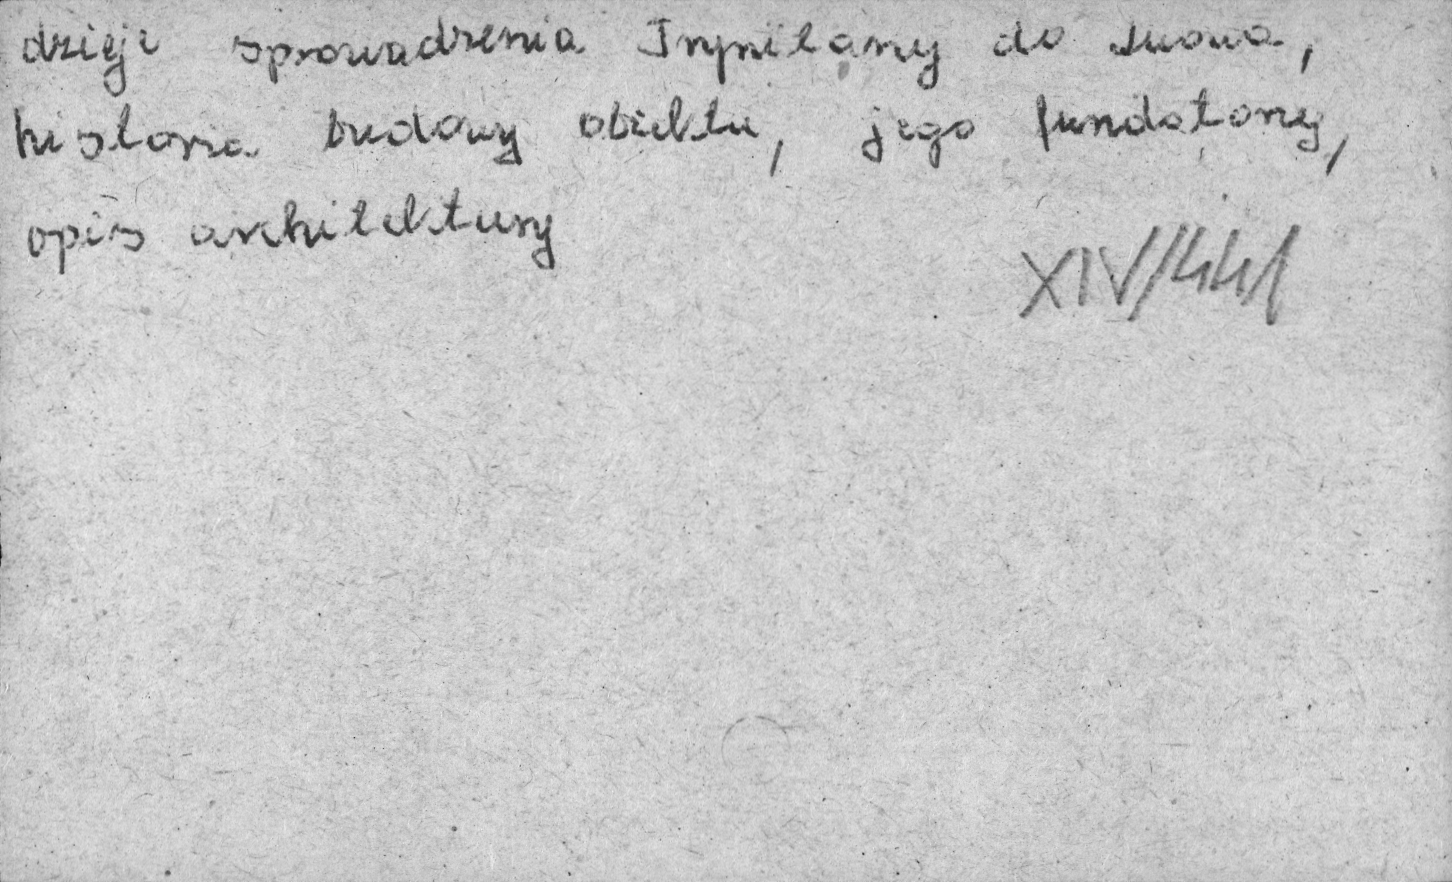 dzieje sprowadzenia Trynitarzy do Lwowa,
historia budowy obiektu, jego fundatorzy,
opis architektury
XIV/441